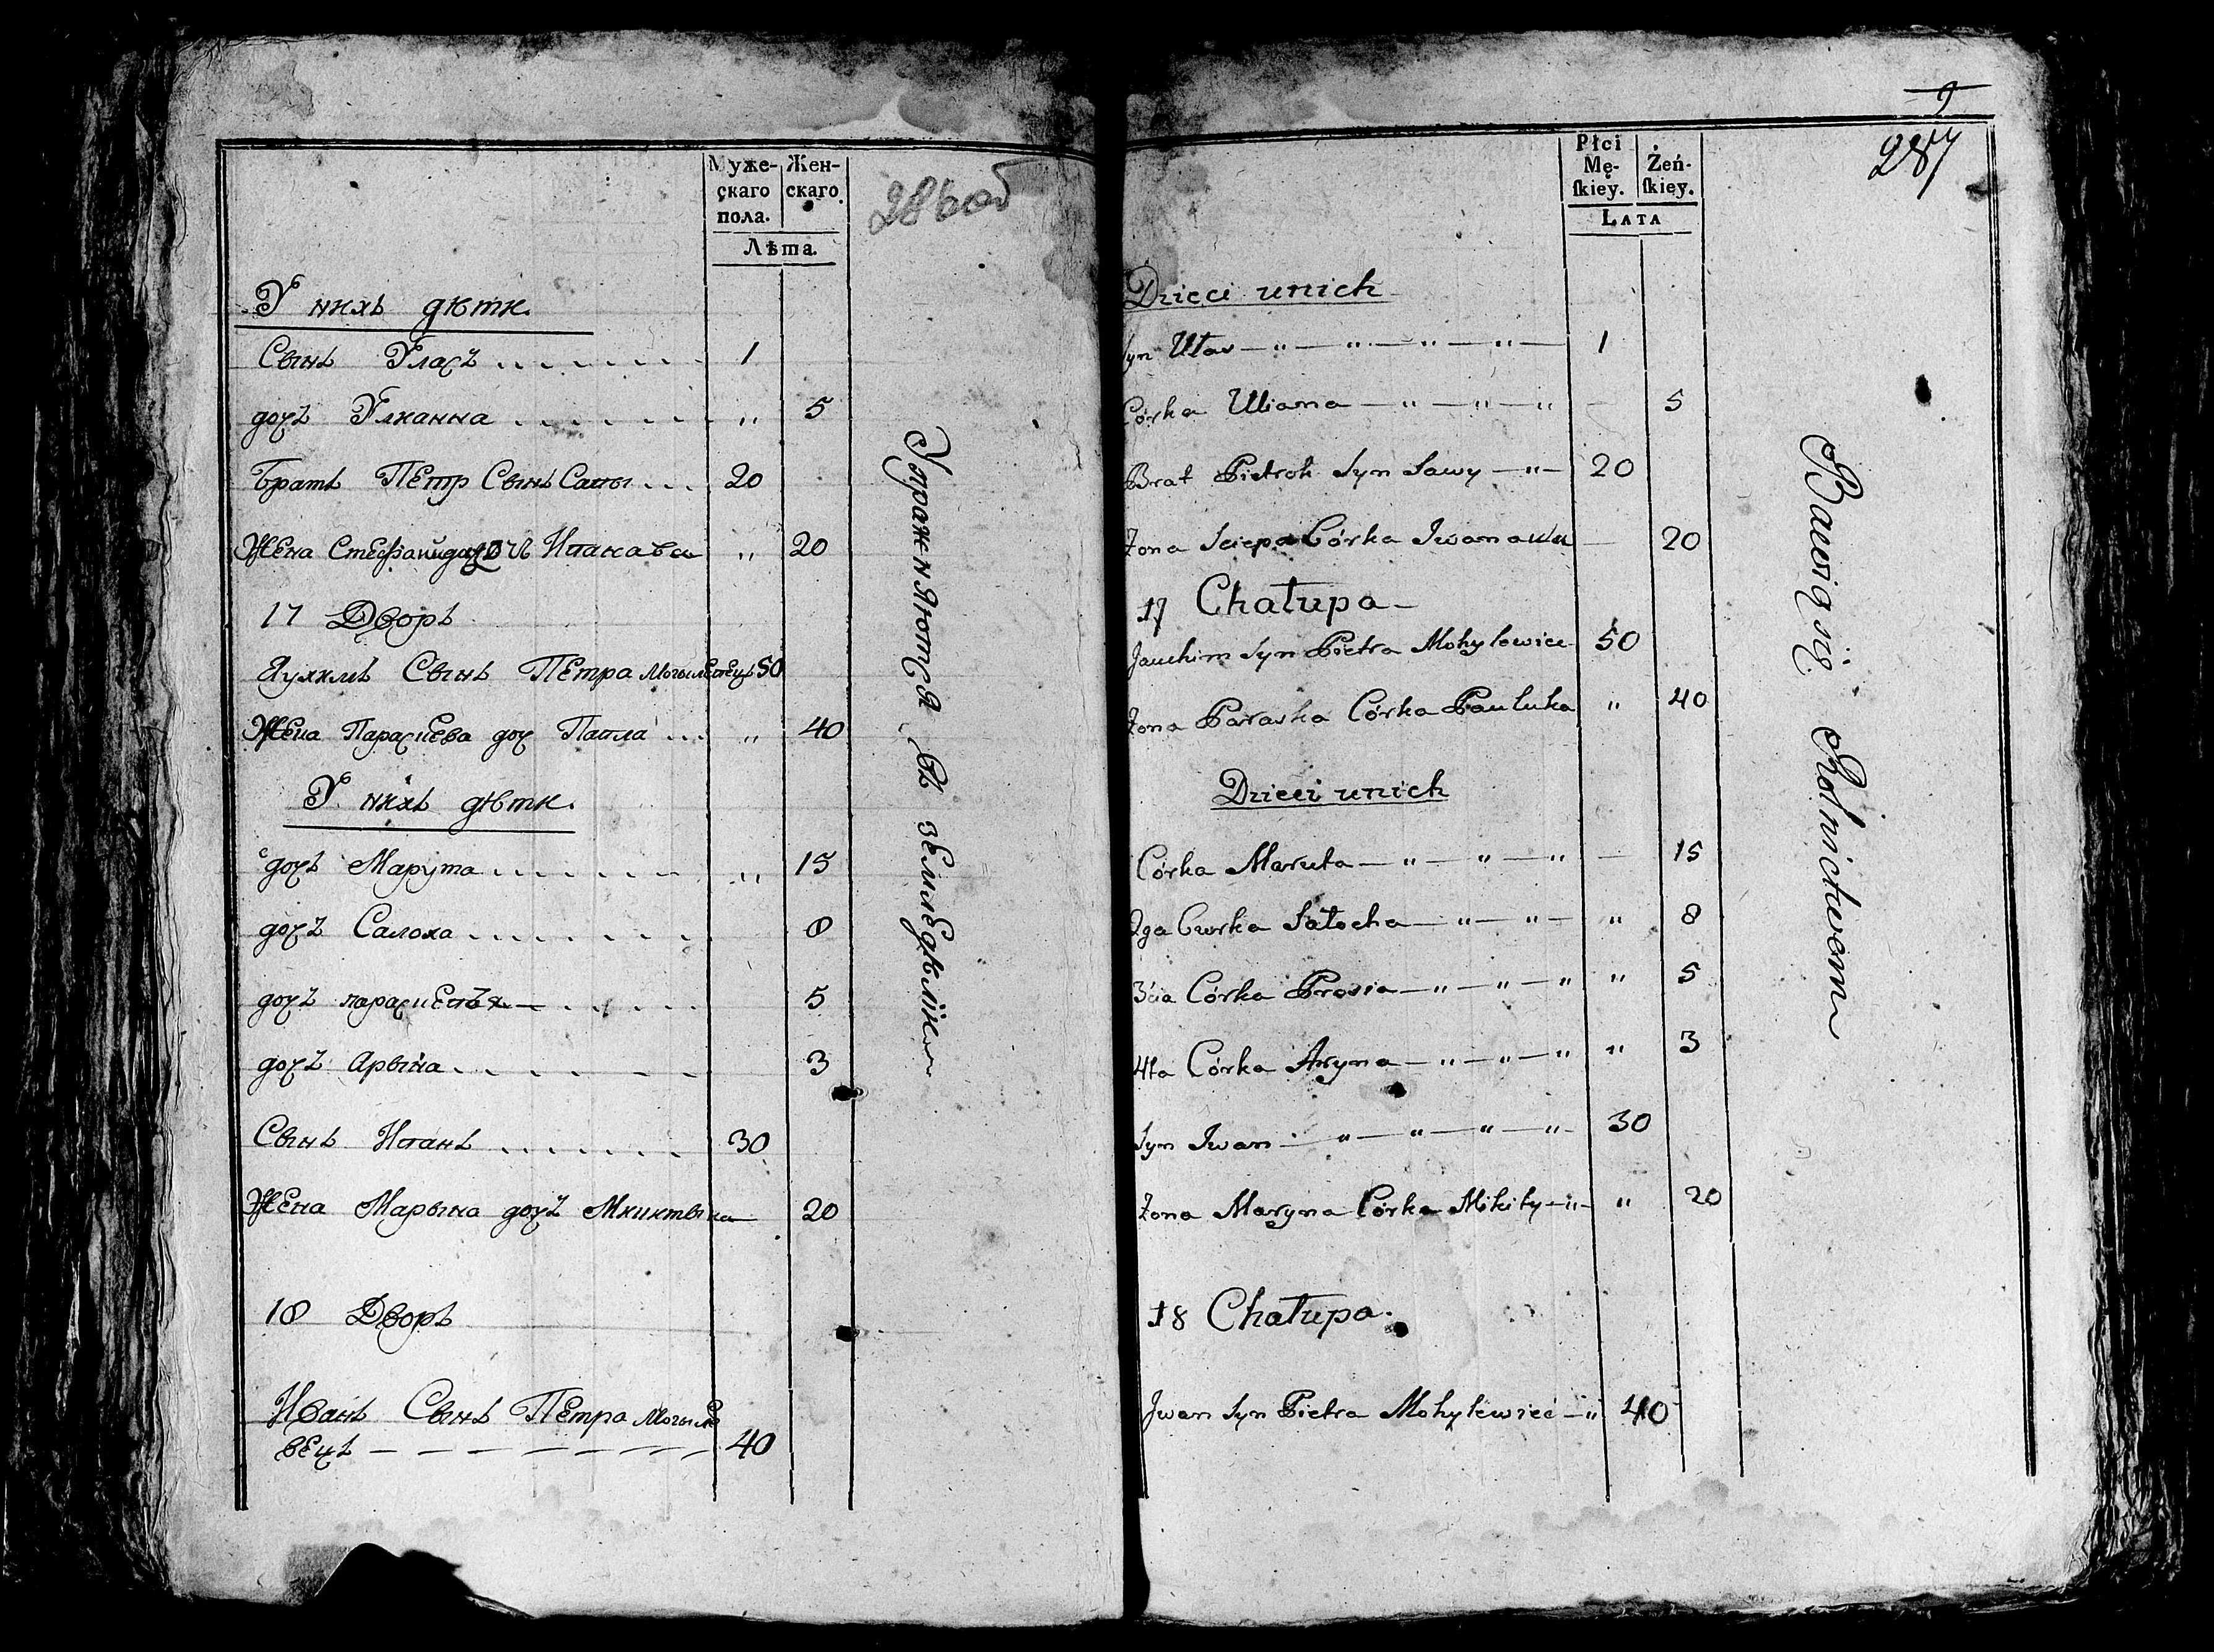 Мужескаго пола. Женскаго.
Лѣта.
286 об
У нихъ дѣти.
Сынъ Уласъ 1
дочъ Улианна „ 5
Братъ Петр Сынъ Савы 20
Жена дочъ Иванава „ 20
17 Дворъ
Яухимъ Сынъ Петра Могилевецъ 50
Жена Параскева доч Павла „ 40
У нихъ дѣти.
дочъ Марута „ 15
дочъ Салоха 8
дочъ 5
дочъ Арына 3
Сынъ Иванъ 30
Жена Марына дочъ 20
18 Дворъ
Иванъ Сынъ Петра Могиле
вецъ 40
Упражняются въ земледѣлии
9
287
Płci Męskiey. Żeńskiey.
Lata
Dzieci unich
Syn Ułas 1
Córka Uliana 5
Brat Pietrok Syn Sawy 20
Żona Sciepa Córka 20
17 Chałupa
Jauchim Syn Pietra Mohylewiec 50
Żona Paraska Córka Pauluka „ 40
Dzieci unich
Córka Maruta 15
2ga Curka Sałocha „ 8
3cia Córka Prosia „ 5
4ta Córka Aryna „ 3
Syn Iwan 30
Żona Maryna Córka Mikity „ 20
18 Chałupa.
Iwan Syn Pietra Mohylewiec 40
Bawią się Rolnictwem